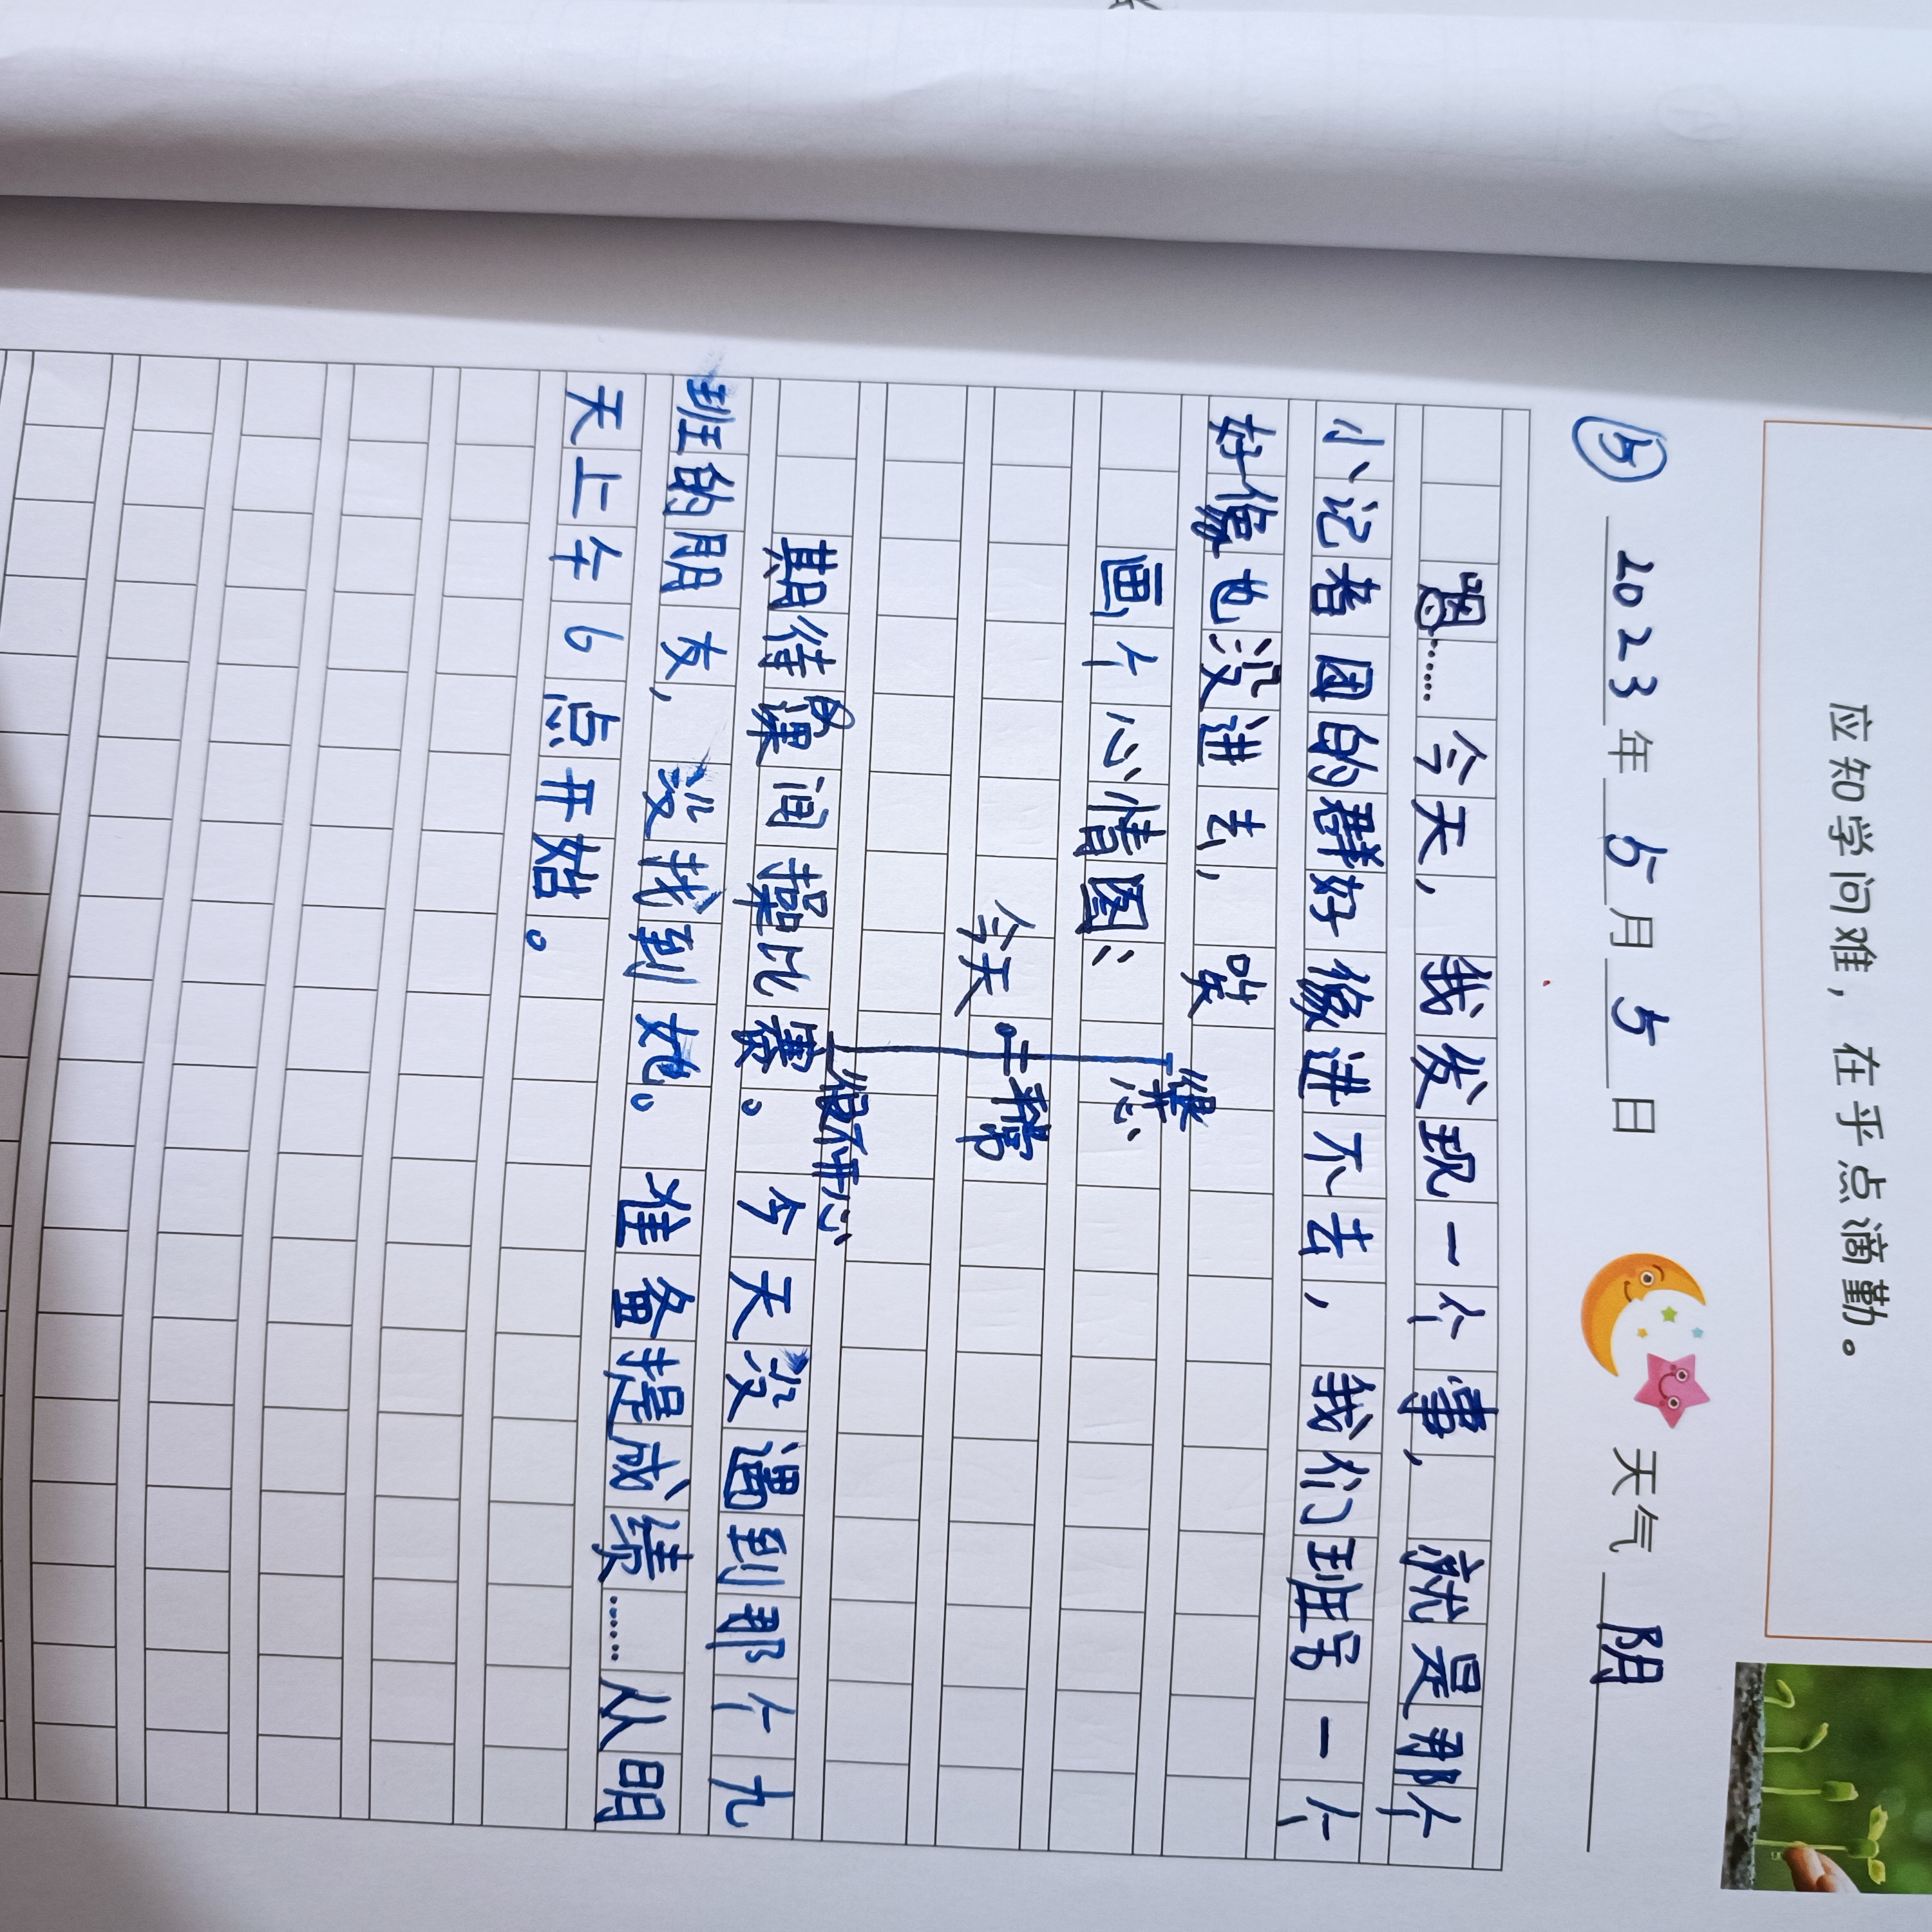 应知学问难，在乎点滴勤。
⑤ 2023年5月5日 天气 阴
嗯……今天，我发现一个事，就是那个
小记者团的群好像进不去，我们班另一个
好像也没进去，唉
画个心情图：
今天 平常
很不开心
期待课间操比赛。今天没遇到那个九
班的朋友，没找到她。准备提成绩……从明
天上午6点开始。